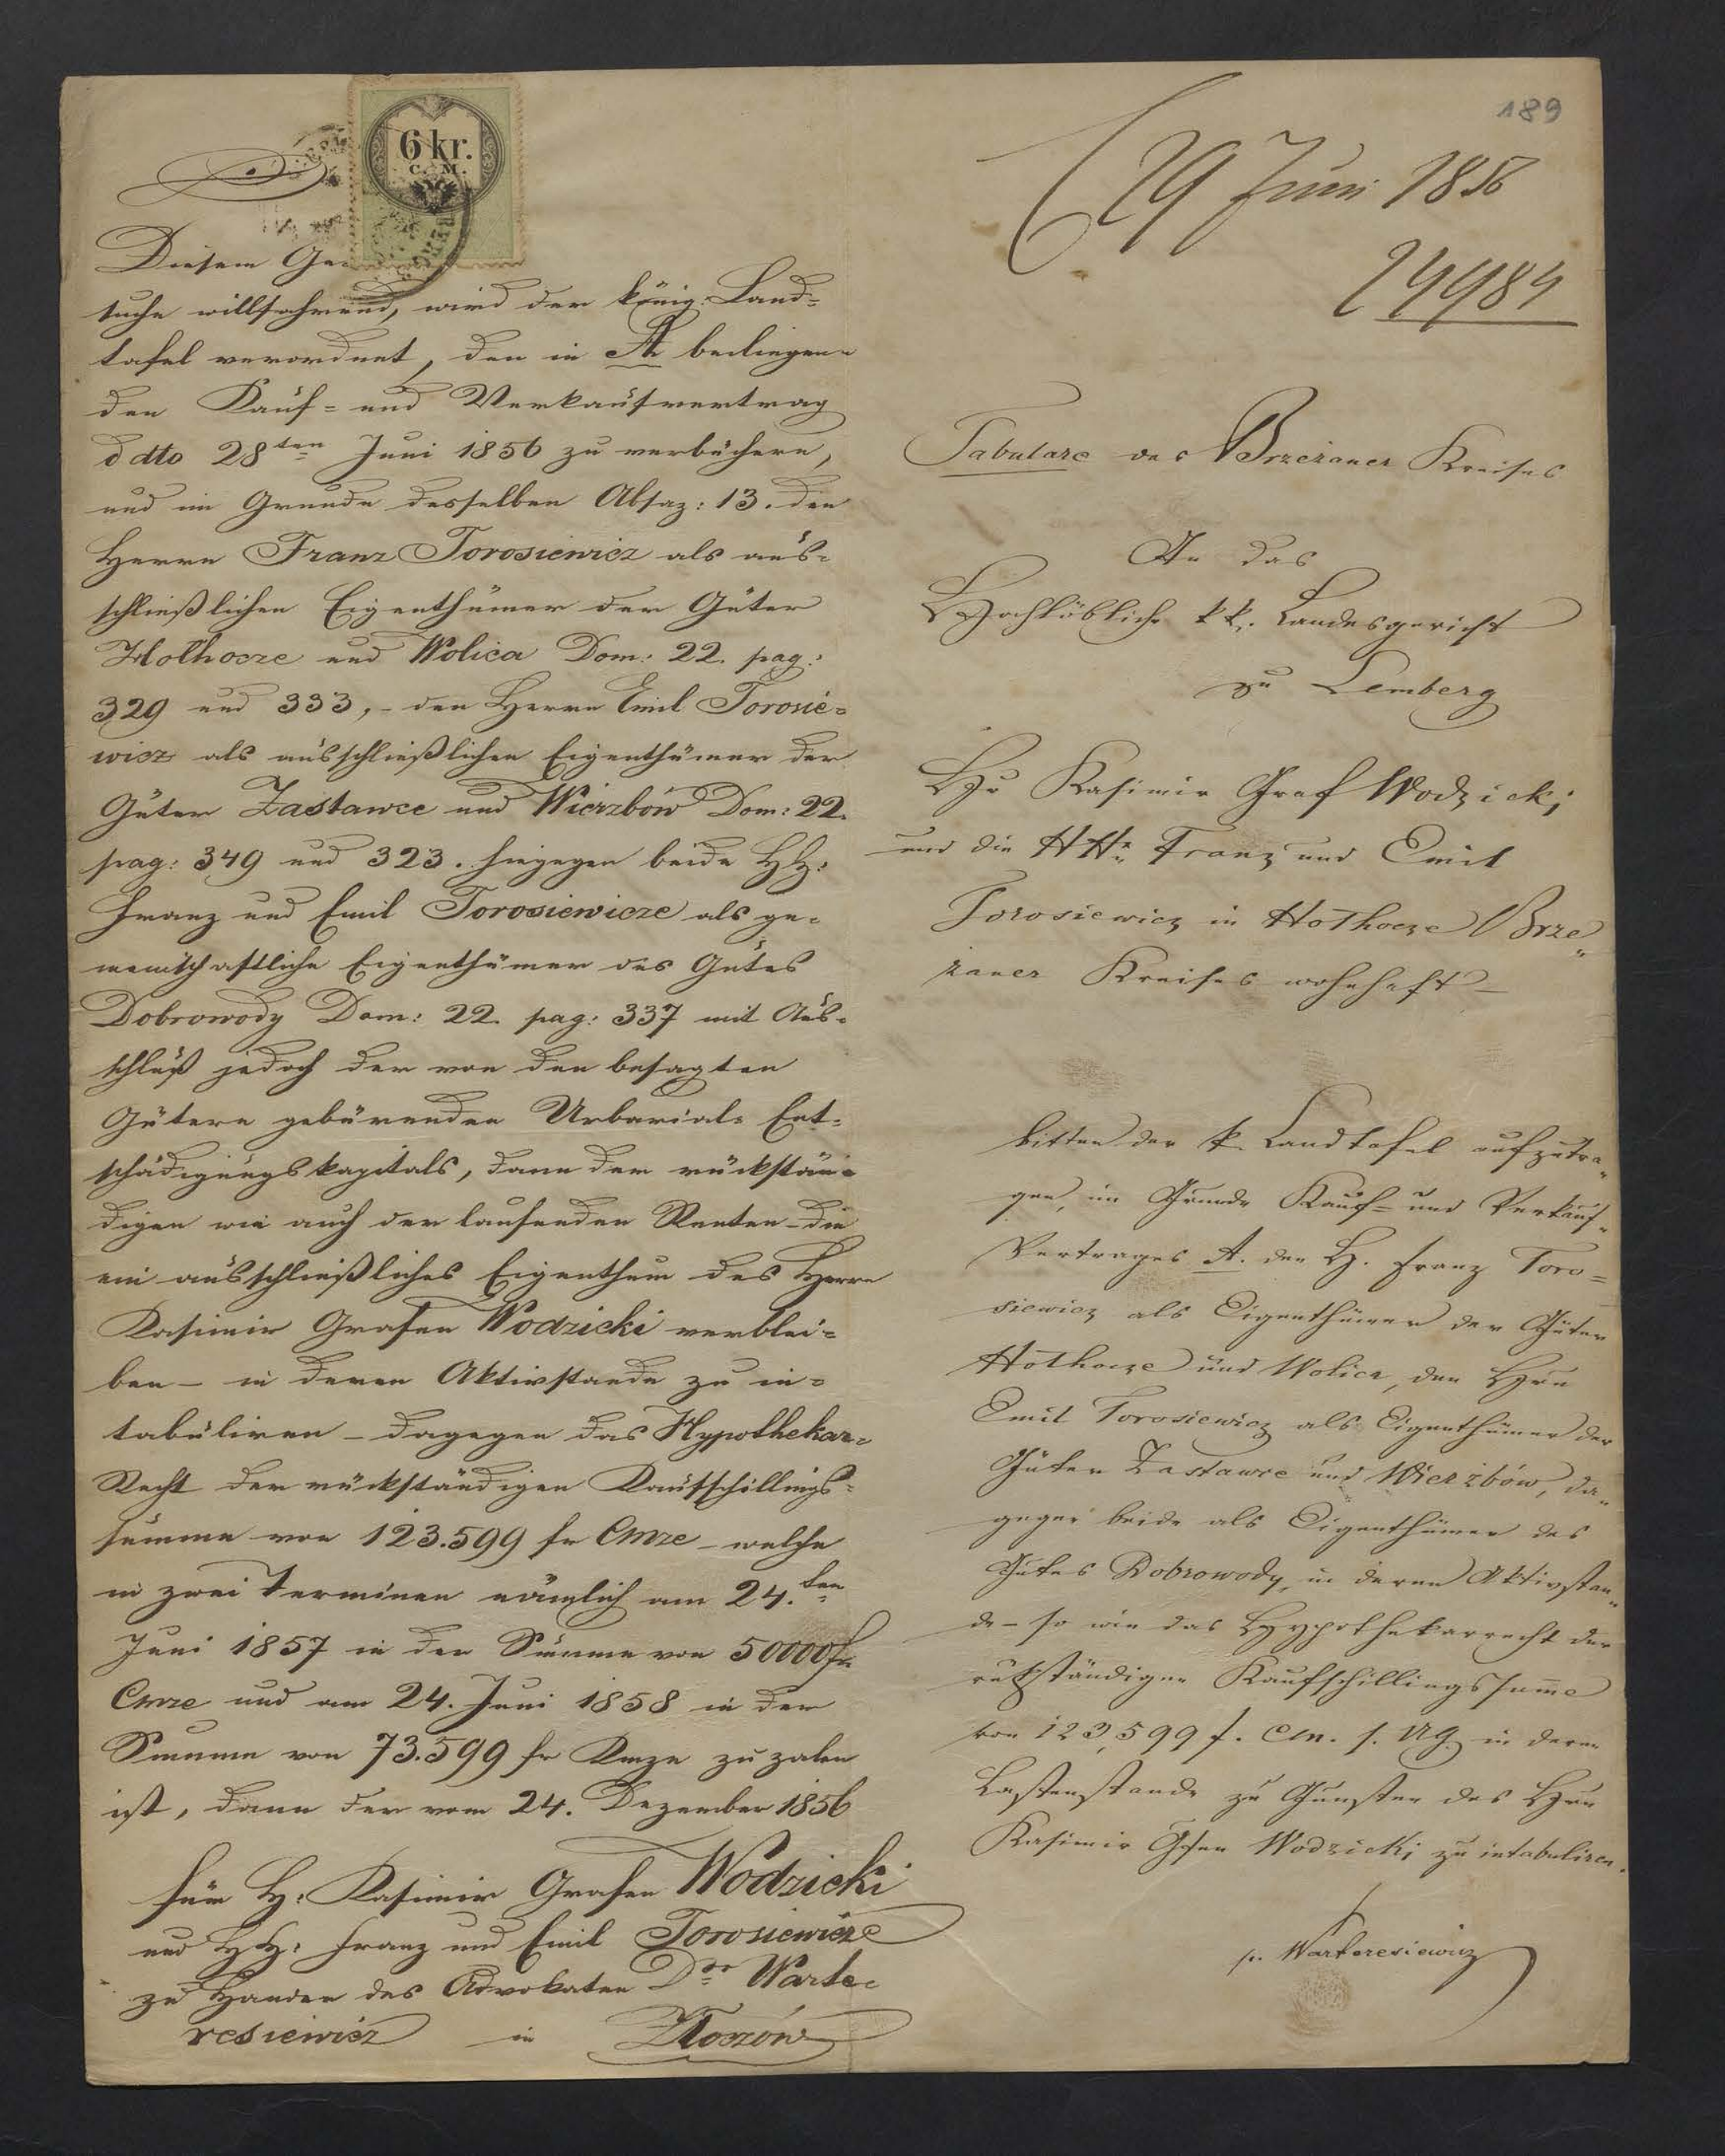 6 kr.
C. M.
Diesem Ge
suche willfahrend, wird der königl: Land=
tafel verordnet, den in A beiliegen=
den Kauf= und Verkaufvertrag
ddto 28ten Juni 1856 zu verbüchern,
und im Grunde desselben Absaz: 13. den
Herrn Franz Torosiewicz als aus=
schließlichen Eigenthümer der Güter
Hołhocze und Wolica Dom: 22. pag:
329 und 333, - den Herrn Emil Torosie=
wicz als ausschließlichen Eigenthümer der
Güter Zastawce und Wierzbów Dom: 22.
pag: 349 und 323. hingegen beide HH:
Franz und Emil Torosiewicze als ge=
meinschaftliche Eigenthümer des Gutes
Dobrowody Dom: 22. pag: 337 mit Aus=
schluß jedoch der von den besagten
Gütern gebürenden Urbarial= Ent=
schädigungskapitals, dann der rückstän=
digen wie auch der laufenden Renten - die
ein ausschließliches Eigenthum des Herrn
Kasimir Grafen Wodzicki verblei=
ben - in deren Aktivstande zu in=
tabuliren - dagegen das Hypothekar=
Recht der rückständigen Kaufschillings=
summe von 123.599 fr Cmze - welche
in zwei Terminen nämlich am 24.ten
Juni 1857 in der Summe von 50000 fr
Cmze und am 24. Juni 1858 in der
Summe von 73.599 fr Kmze zu zalen
ist, dann der vom 24. Dezember 1856
für H: Kasimir Grafen Wodzicki
und HH: Franz und Emil Torosiewicze
zu Handen des Advokaten Dor Warte=
resiewicz in Złoczów
189
29 Juni 1856
24984
Tabulare des Brzeżaner Kreises
An das
Hochlöbliche kk. Landesgericht
zu Lemberg
Hr Kasimir Graf Wodzicki
und die HHn Franz und Emil
Torosiewicz in Hołhocze Brze„
żaner Kreises wohnhaft -
bitten der k. Landtafel aufzutra„
gen, im Grunde Kauf= und Verkauf„
Vertrages A. den H. Franz Toro=
siewicz als Eigenthümer der Güter
Hołhocze und Wolica, den Hrn
Emil Torosiewicz als Eigenthümer der
Güter Zastawce und Wierzbów, da„
gegen beide als Eigenthümer des
Gutes Dobrowody, in deren Aktivstan„
de - so wie das Hypothekarrecht der
rükständigen Kaufschillingssumme
von 123,599 f. CM. s. NG. in deren
Lastenstande zu Gunsten des Hrn
Kasimir Gfen Wodzicki zu intabuliren.
pr. Warteresiewicz